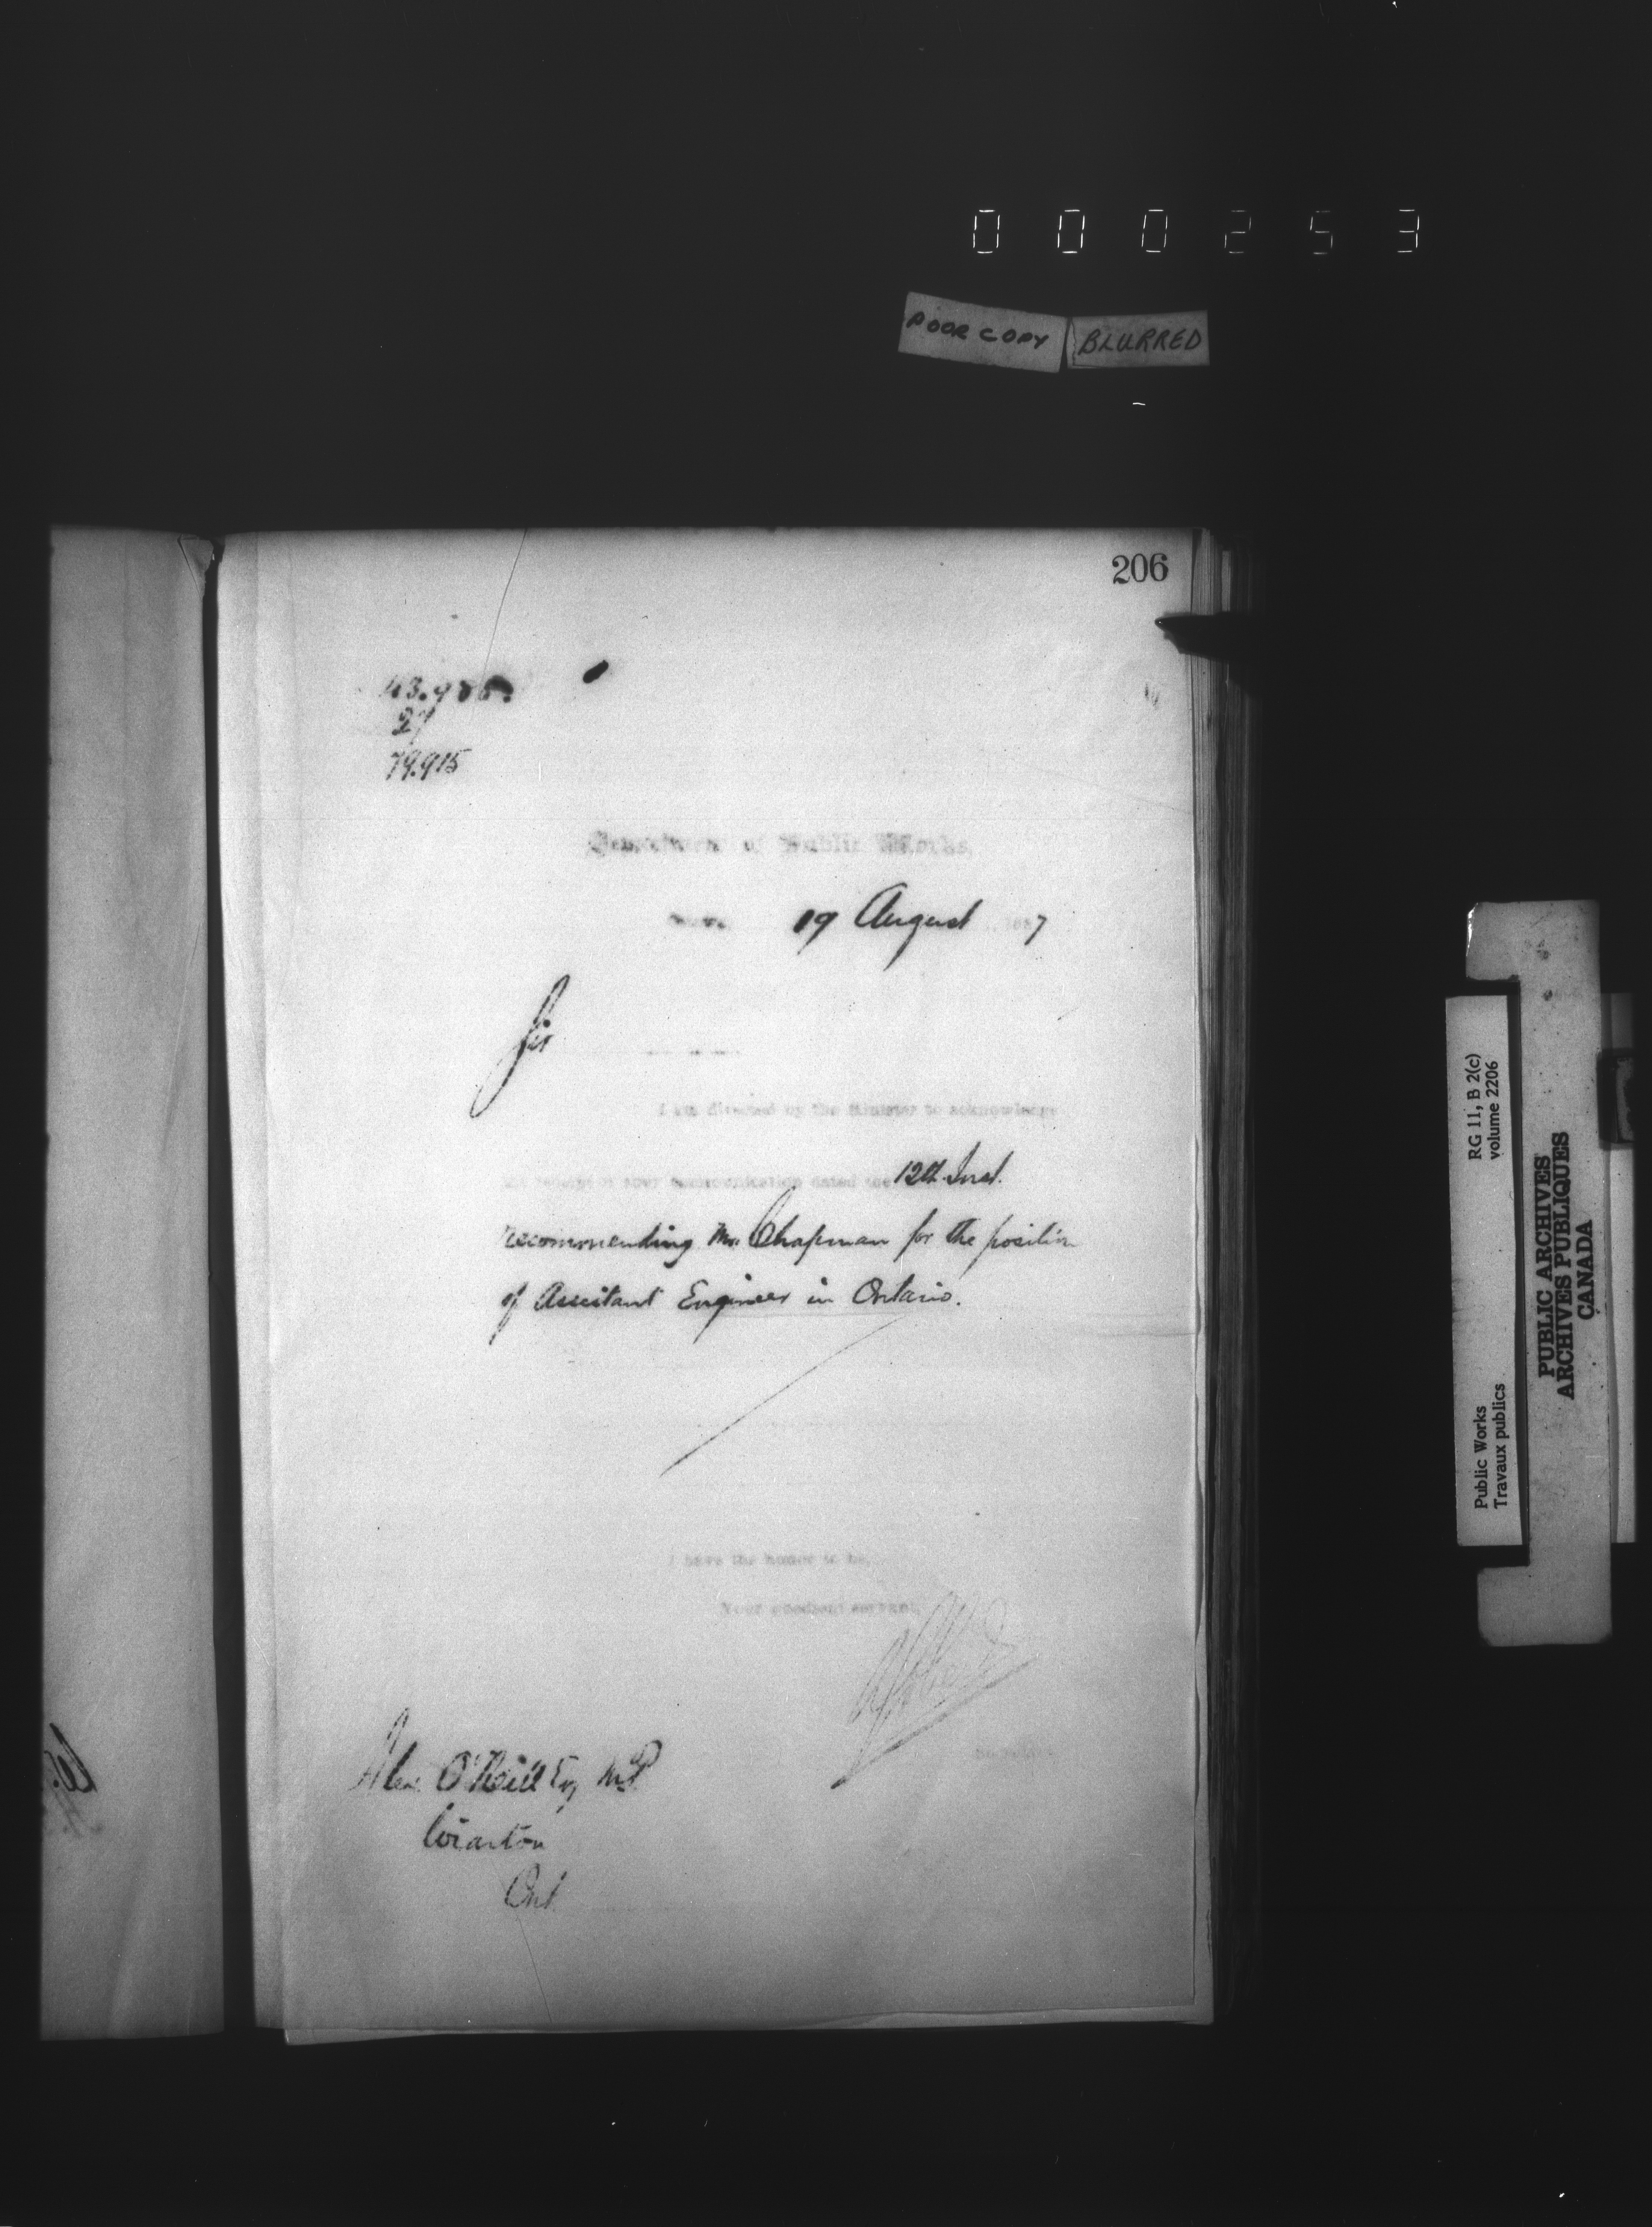 000253
POOR COPY BLURRED
206
27
79.915
Department of Public Works,
19 August 7
Sir
I am directed by the Minister to acknowledge
the receipt of your communication dated the 12th Inst.
recommending Mr. Chapman for the position
of Assitant Engineer in Ontario.
I have the honor to be,
Your obedient servant,
Secretary
O'Neill Esq MP
Wiarton
Ont
Public Works
Travaux publics
RG 11, B 2(c)
volume 2206
PUBLIC ARCHIVES
ARCHIVES PUBLIQUES
CANADA